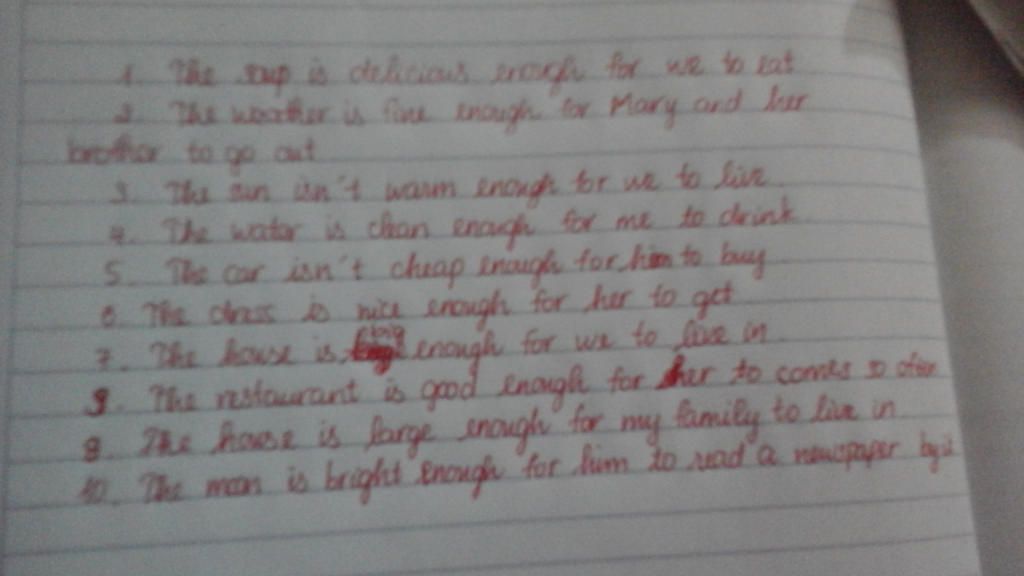 1. The soup is delicious enough for we to eat
2. The weather is fine enough for Mary and her
brother to go out
3. The sun isn't warm enough for we to live
4. The water is clean enough for me to drink
5. The car isn't cheap enough for him to buy
6 The dress is nice enough for her to get
7. The house is big enough for we to live in
8. The restaurant is good enough for her to comes so often
9. The house is large enough for my family to live in
10. The moon is bright enough for him to read a newspaper by it